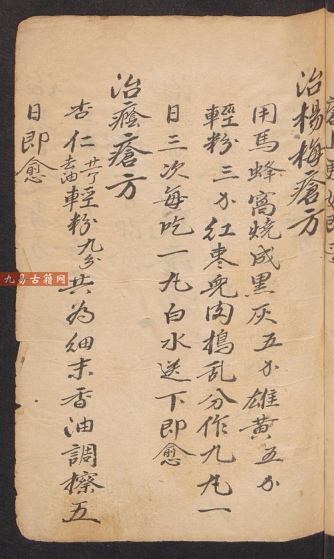 治楊梅瘡方
用馬蜂窩燒成黑灰五分雄黃五分
輕粉三分紅棗兒肉搗乱分作九丸一
日三次每吃一丸白水送下即愈
治癊瘡方
杏仁去油輕粉九分共為細末香油調擦五
日即愈
九易古籍网